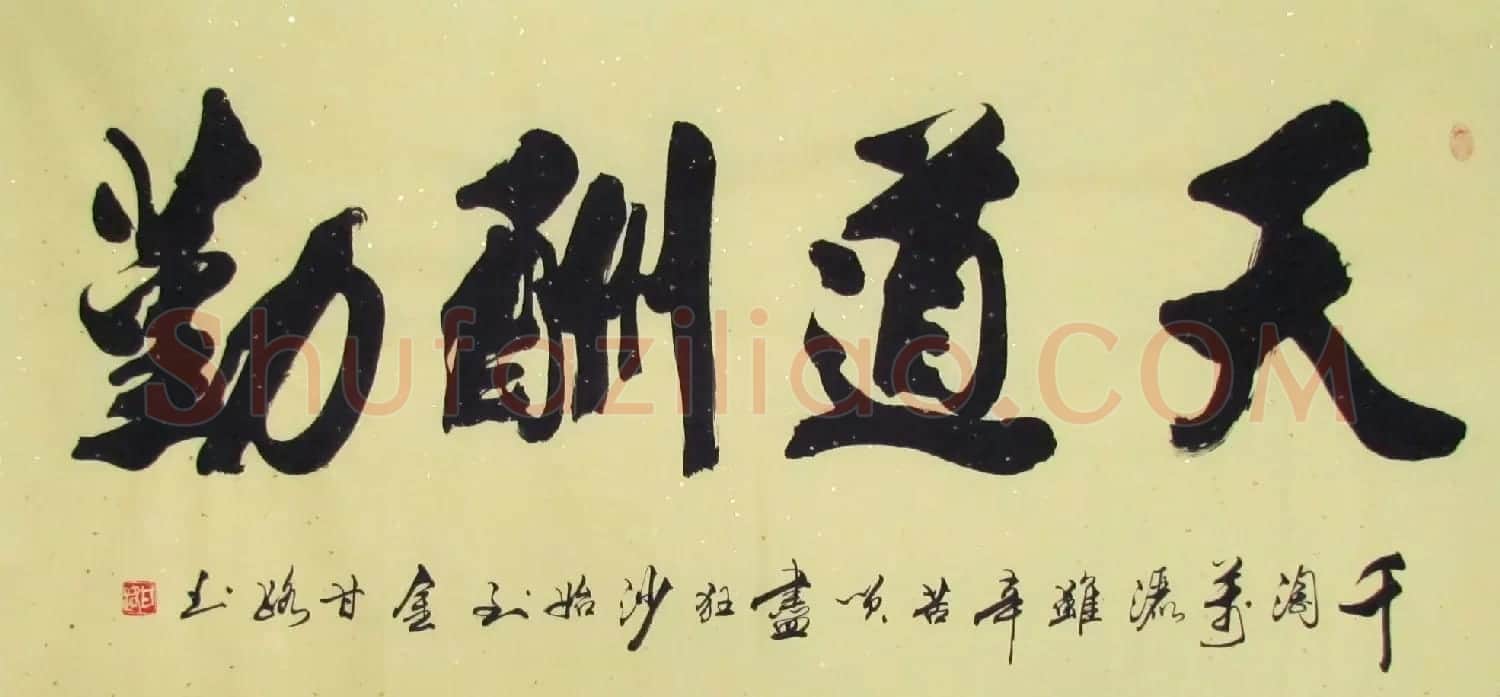 天道酬勤
千淘萬漉雖辛苦吹盡狂沙始到金甘书
Shufaziliao.COM